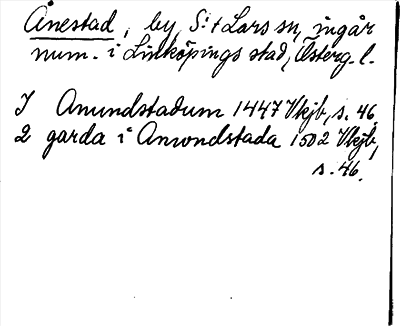 Ånestad, by, S:t Lars sn, ingår
num. i Linköpings stad, Österg. l.
I Anundstadum 1447 Vkjb, s. 46.
2 garda i Anwondstada 1502 Vkjb,
s. 46.